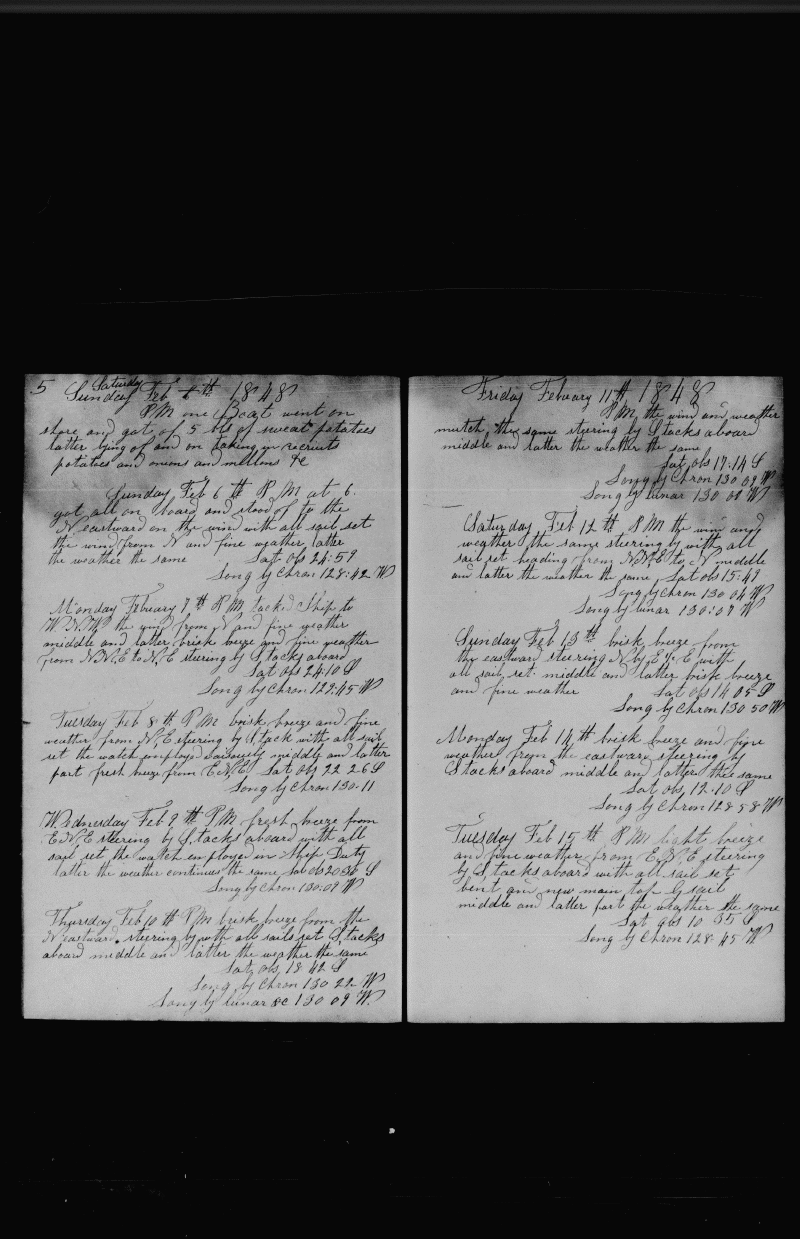 5 Saturday
Sunday Feb 5th 1848
P.M one Boat went on
shore and got of 5 bls of sweat potatoes
latter lying of and on taking in recruits
potatoes and onions and mellons &c
Sunday Feb 6th P M at 6.
got all on board and stood of to the
N eastward on the wind with all sail set
the wind from N and fine weather latter
the weather the same Lat obs 24:59
Long by Chron 128:42 W
Monday Febuary 7th P M tacked Ship to
W.N.W the wind from N and fine weather
middle and latter brisk breeze and fine weather
from N.N.E to N.E steering by S,tacks aboard
Lat obs 24:10 S
Long by Chron 129:45 W
Tuesday Feb 8th P M brisk breeze and fine
weather from N.E steering by S tack with all sail
set the watch employd variously middle and latter
part fresh breeze from E.N.E Lat obs 22 26 S
Long by Chron 130-11
Wednesday Feb 9th P M fresh breeze from
E.N.E steering by S.tacks aboard with all
sail set the watch employed in Ship Duty
latter the weather continues the same Lat obs 20 30 S
Long by Chron 130:09 W
Thursday Feb 10th P M brisk breeze from the
N eastward. steering by with all sails set S,tacks
aboard middle and latter the weather the same
Lat obs, 18 42 S
Long by Chron 130 22 W
Long by lunar &c 130 09 W.
Friday Febuary 11th, 1848
P M, the wind and weather
mutch, the same steering by S tacks aboard
middle and latter the weather the same
Lat obs 17:14 S
Long by Chron 130 09 W
Long by lunar 130 00 W
Saturday Feb 12th P M the wind and
weather the same steering by with all
sail set heading from N.N.E to N middle
and latter the weather the same, Lat obs 15:49
Long by Chron 130 04 W
Long by lunar 130:07 W
Sunday Feb 13th brisk breeze from
the eastward steering N by E ½ E with
all sail set middle and latter brisk breeze
and fine weather Lat obs 14 05 S
Long by Chron 130 50 W
Monday Feb 14th brisk breeze and fine
weather from the eastward steering by
S tacks aboard middle and latter the same
Lat obs, 12-10 S
Long by Chron 128 58 W
Tuesday Feb 15th P M light breeze
and fine weather from E.N.E steering
by S, tacks aboard with all sail set
bent an new main top G sail
middle and latter part the weather the same
Lat obs 10 35 S
Long by Chron 128 45 W